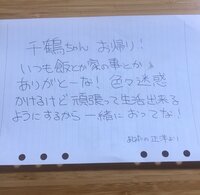 千鶴ちゃん お帰り！
いつも飯とか家の事とか
ありがとーな！色々迷惑
かけるけど頑張って生活出来る
ようにするから一緒におってな！
正洋より